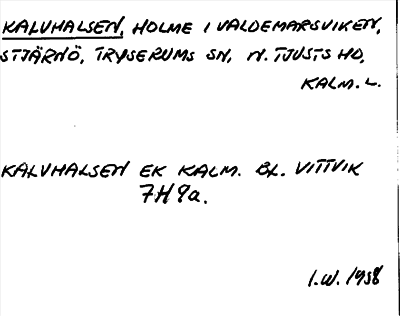 KALVHALSEN, HOLME I VALDEMARSVIKEN,
STJÄRNÖ, TRYSERUMS SN, N. TJUSTS HD,
KALM. L.
KALVHALSEN EK KALM. BL. VITTVIK
7H9a.
I.W. 1958